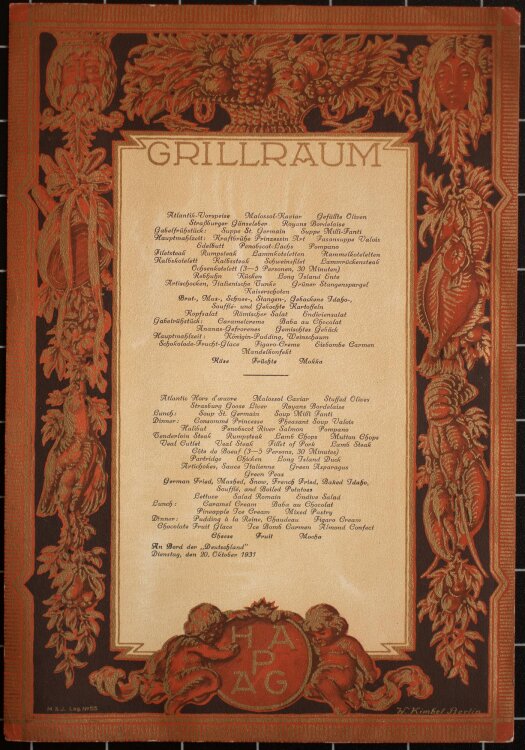 GRILLRAUM
Atlantik-Vorspeise Malossol-Kaviar Gefüllte Oliven
Straßburger Gänseleber Royans Bordelaise
Gabelfrühstück: Suppe St. Germain Suppe Milli-Fanti
Hauptmahlzeit: Kraftbrühe Prinzessin Art Fasansuppe Valois
Edelbutt Penobscot-Lachs Pompano
Filetsteak Rumpsteak Lammkoteletten Hammelkoteletten
Kalbskotelett Kalbssteak Schweinsfilet Lammrückensteak
Ochsenkotelett (3—5 Personen, 30 Minuten)
Rebhuhn Kücken Long Island Ente
Artischocken, Italienische Tunke Grüner Stangenspargel
Kaiserschoten
Brat-, Mus-, Schnee-, Stangen-, Gebackene Idaho-,
Soufflé- und Gekochte Kartoffeln
Kopfsalat Römischer Salat Endiviensalat
Gabelfrühstück: Caramelcreme Baba au Chocolat
Ananas-Gefrorenes Gemischtes Gebäck
Hauptmahlzeit: Königin-Pudding, Weinschaum
Schokolade-Frucht-Glace Figaro-Creme Eisbombe Carmen
Mandelkonfekt
Käse Früchte Mokka
Atlantic Hors d'œuvre Malossol Caviar Stuffed Olives
Strasburg Goose Liver Royans Bordelaise
Lunch: Soup St. Germain Soup Milli Fanti
Dinner: Consommé Princesse Pheasant Soup Valois
Halibut Penobscot River Salmon Pompano
Tenderloin Steak Rumpsteak Lamb Chops Mutton Chops
Veal Cutlet Veal Steak Fillet of Pork Lamb Steak
Côte de Boeuf (3—5 Persons, 30 Minutes)
Partridge Chicken Long Island Duck
Artichokes, Sauce Italienne Green Asparagus
Green Peas
German Fried, Mashed, Snow, French Fried, Baked Idaho,
Soufflé, and Boiled Potatoes
Lettuce Salad Romain Endive Salad
Lunch: Caramel Cream Baba au Chocolat
Pineapple Ice Cream Mixed Pastry
Dinner: Pudding à la Reine, Chaudeau Figaro Cream
Chocolate Fruit Glace Ice Bomb Carmen Almond Confect
Cheese Fruit Mocha
An Bord der „Deutschland"
Dienstag, den 20. Oktober 1931
HAPAG
H.S.J. Lag. Nº 55
W. Kimbel Berlin